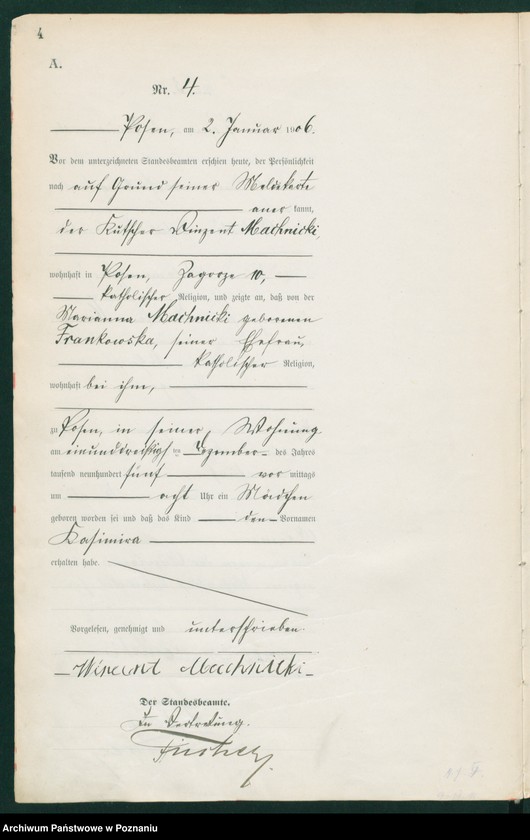 4
A.
Nr. 4.
Posen, am 2. Januar 1906.
Vor dem unterzeichneten Standesbeamten erschien heute, der Persönlichkeit
nach auf Grund seiner Meldekarte
anerkannt,
der Kutscher Vinzent Machnicki,
wohnhaft in Posen, Zagorze 10,
katholischer Religion, und zeigte an, daß von der
Marianna Machnicki geborenen
Frankowska, seiner Ehefrau,
katholischer Religion,
wohnhaft bei ihm,
zu Posen, in seiner Wohnung
am einunddreißigsten Dezember des Jahres
tausend neunhundert fünf vor mittags
um acht Uhr ein Mädchen
geboren worden sei und daß das Kind den Vornamen
Kasimira
erhalten habe.
Vorgelesen, genehmigt und unterschrieben.
Wincent Machnicki
Der Standesbeamte.
In Vertretung.
Archiwum Państwowe w Poznaniu